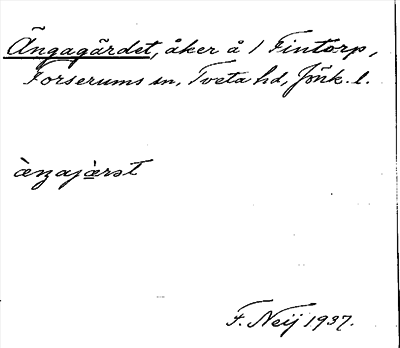 Ängagärdet, åker å 1 Fintorp,
Forserums sn, Tveta hd, Jönk. l.
àŋajàrət
F. Neij 1937.